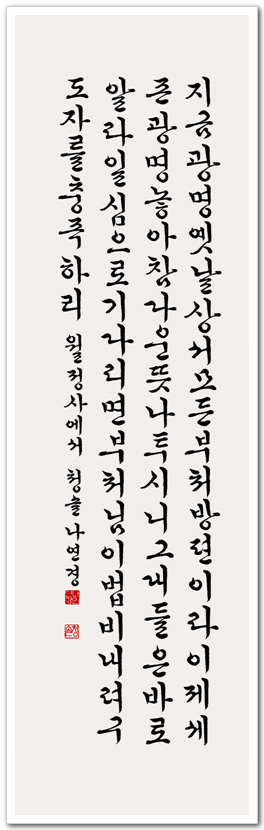 지금광명옛날상서모든부처방편이라이제세
존광명놓아참다운뜻나투시니그대들은바로
알라일심으로기다리면부처님이법비내려구
도자를충족하리 월정사에서 청솔나연경